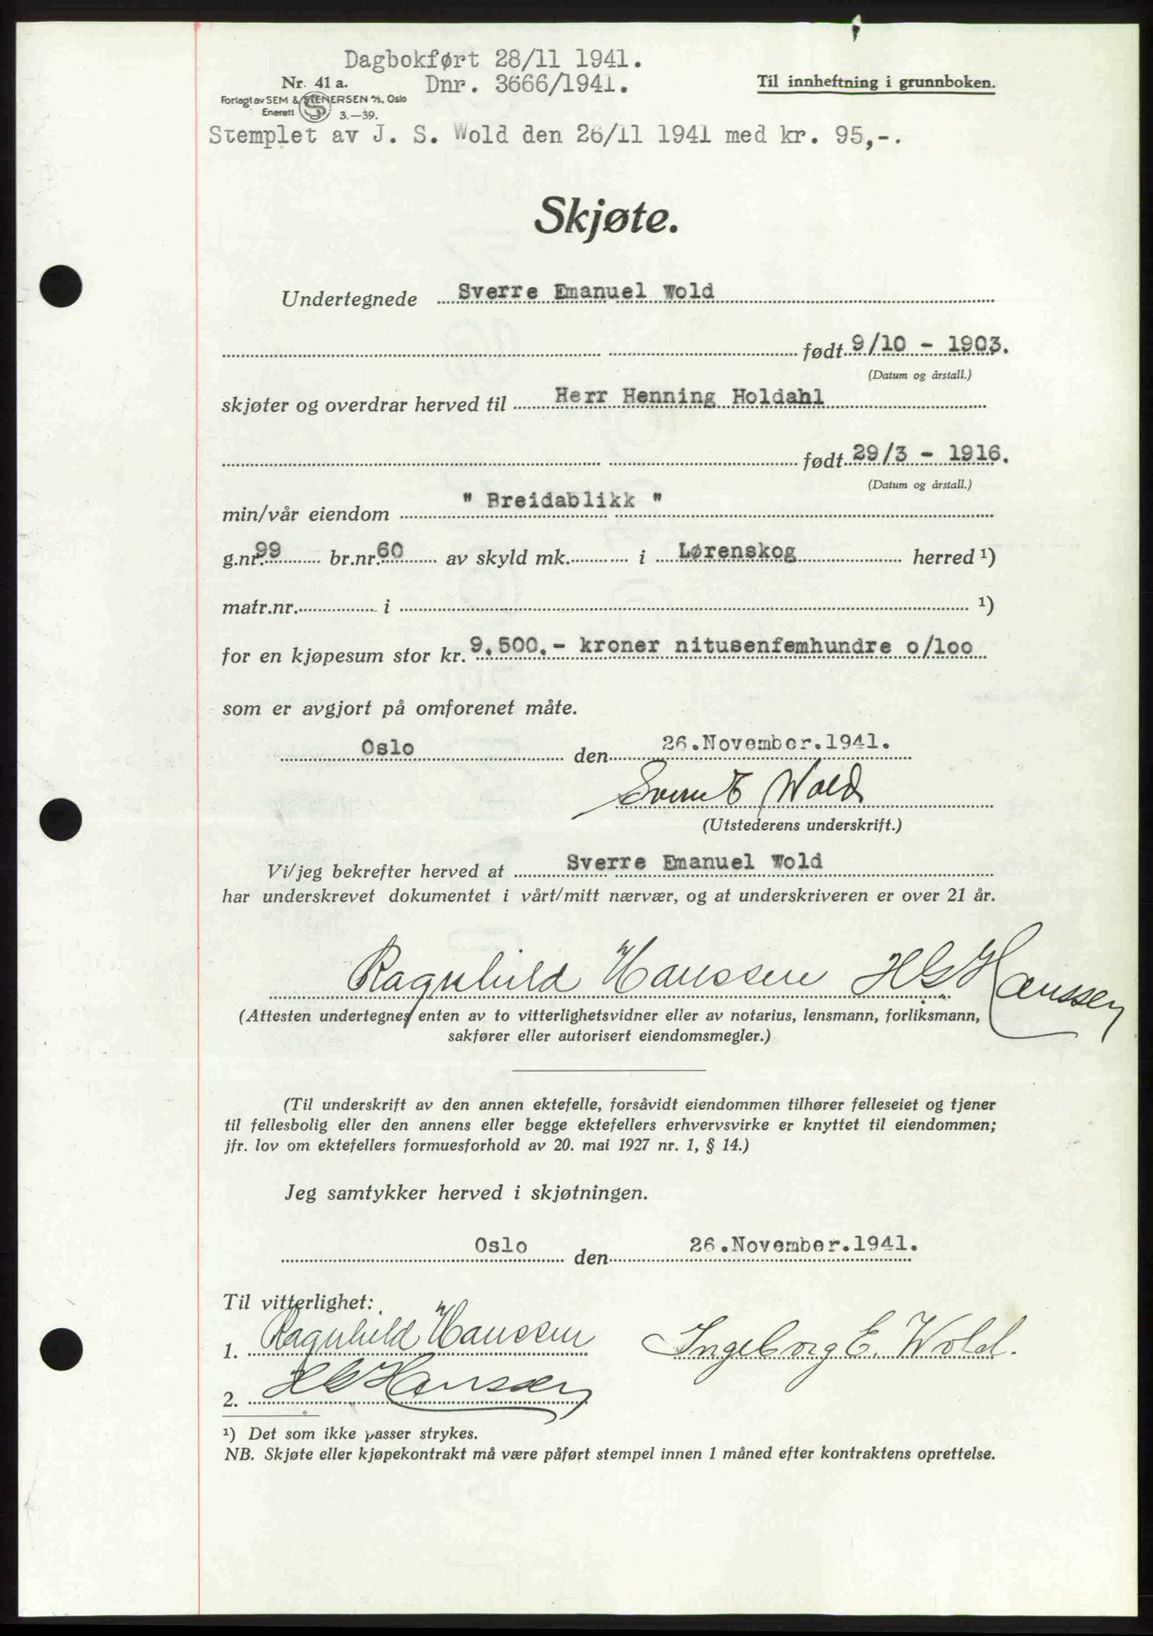 Dagbokført 28/11 1941.
Nr. 41 a. Dnr. 3666/1941. Til innheftning i grunnboken.
Forlagt av SEM & STENERSEN A/S, Oslo
Enerett S 3.—39.
Stemplet av J. S. Wold den 26/11 1941 med kr. 95,-.
Skjøte.
Undertegnede Sverre Emanuel Wold
født 9/10 - 1903.
(Datum og årstall.)
skjøter og overdrar herved til Herr Henning Holdahl
født 29/3 - 1916.
(Datum og årstall.)
min/vår eiendom " Breidablikk "
g.nr. 99 br.nr. 60 av skyld mk. i Lørenskog herred ¹)
matr.nr. i ¹)
for en kjøpesum stor kr. 9.500.- kroner nitusenfemhundre o/loo
som er avgjort på omforenet måte.
Oslo den 26.November.1941.
Sverre E Wold
(Utstederens underskrift.)
Vi/jeg bekrefter herved at Sverre Emanuel Wold
har underskrevet dokumentet i vårt/mitt nærvær, og at underskriveren er over 21 år.
Ragnhild Hanssen HG Hanssen
(Attesten undertegnes enten av to vitterlighetsvidner eller av notarius, lensmann, forliksmann,
sakfører eller autorisert eiendomsmegler.)
(Til underskrift av den annen ektefelle, forsåvidt eiendommen tilhører felleseiet og tjener
til fellesbolig eller den annens eller begge ektefellers erhvervsvirke er knyttet til eiendommen;
jfr. lov om ektefellers formuesforhold av 20. mai 1927 nr. 1, § 14.)
Jeg samtykker herved i skjøtningen.
Oslo den 26.November.1941.
Til vitterlighet:
1. Ragnhild Hanssen Ingeborg E. Wold.
2. HG Hanssen
¹) Det som ikke passer strykes.
NB. Skjøte eller kjøpekontrakt må være påført stempel innen 1 måned efter kontraktens oprettelse.